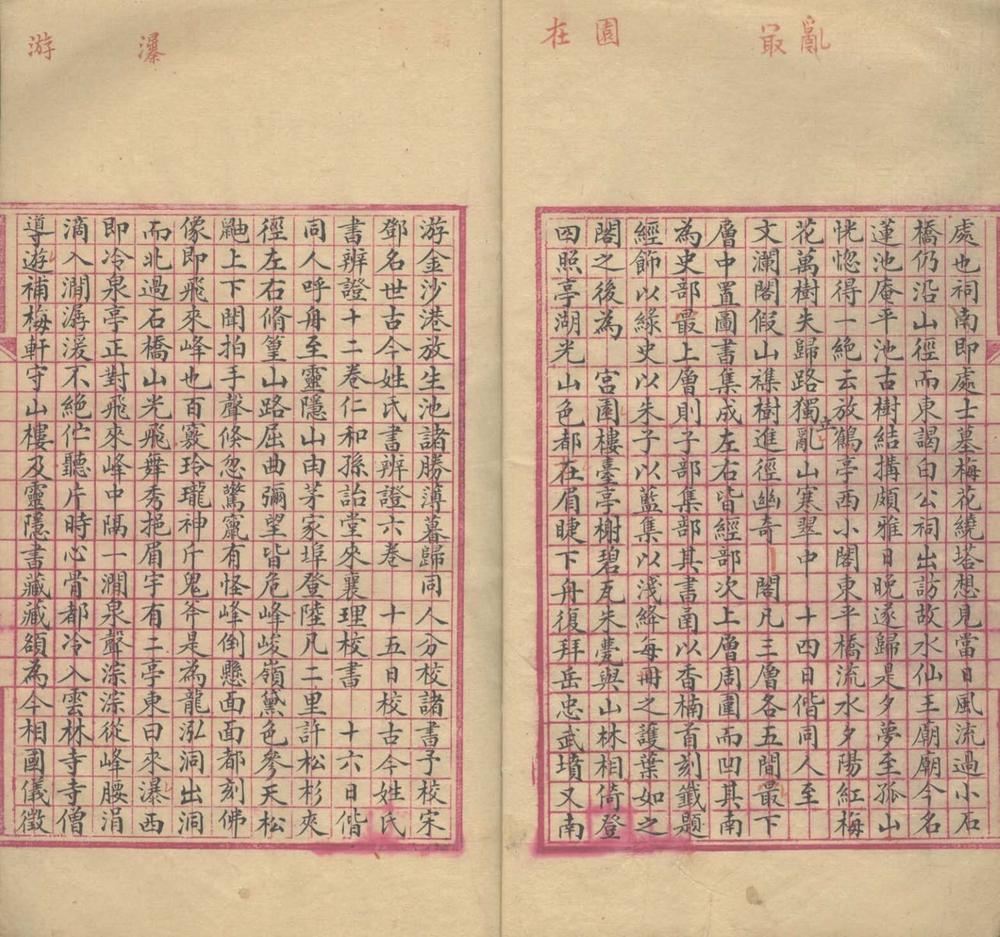 亂
最
園
在
處也祠南即處士墓梅花繞塔想見當日風流過小石
橋仍沿山徑而東謁白公祠出訪故水仙王廟廟今名
蓮池庵平池古樹結搆頗雅日晚遂歸是夕夢至孤山
恍惚得一絕云放鶴亭西小閣東平橋流水夕陽紅梅
花萬樹失歸路獨立亂山寒翠中　十四日偕同人至
文瀾閣假山襍樹進徑幽奇　閣凡三層各五間最下
層中置圖書集成左右皆經部次上層周圍而凹其南
為史部最上層則子部集部其書函以香楠首刻籤題
經飾以綠史以朱子以藍集以淺絳每冊之護葉如之
閣之後為　宮園樓臺亭榭碧瓦朱甍與山林相倚登
四照亭湖光山色都在眉睫下舟復拜岳忠武墳又南
瀑
游
游金沙港放生池諸勝薄暮歸同人分校諸書予校宋
鄧名世古今姓氏書辨證六卷　十五日校古今姓氏
書辨證十二卷仁和孫詒堂來襄理校書　十六日偕
同人呼舟至靈隱山由茅家埠登陸凡二里許松杉夾
徑左右脩篁山路屈曲彌望皆危峰峻嶺黛色參天松
鼬上下聞拍手聲倏忽驚竄有怪峰倒懸面面都刻佛
像即飛來峰也百竅玲瓏神斤鬼斧是為龍泓洞出洞
而北過石橋山光飛舞秀挹眉宇有二亭東曰來瀑西
即冷泉亭正對飛來峰中隔一澗泉聲淙淙從峰腰涓
滴入澗潺湲不絕伫聽片時心骨都冷入雲林寺寺僧
導遊補梅軒守山樓及靈隱書藏藏額為今相國儀徵